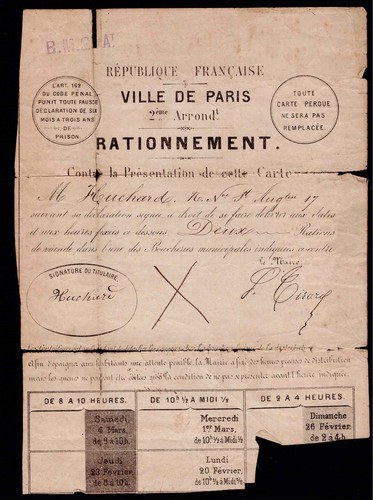 B.M.
RÉPUBLIQUE FRANÇAISE
L'ART. 162
DU CODE PÉNAL
PUNIT TOUTE FAUSSE
DÉCLARATION DE SIX
MOIS A TROIS ANS
DE
PRISON.
VILLE DE PARIS
2ème Arrondt
TOUTE
CARTE PERDUE
NE SERA PAS
REMPLACÉE.
RATIONNEMENT.
Contre la Présentation de cette Carte
M Huchard, Rue Nve St Augtin 17
suivant sa déclaration a droit de se faire délivrer aux dates
et aux heures fixées ci dessous Deux Rations
de viande dans l'une des Boucheries municipales indiquées ci contre
Le Maire
SIGNATURE DU TITULAIRE
Huchard
Afin d'épargner aux habitants une attente pénible, la Mairie a fixé des heures précises de distribution
mais les queues ne pourront être évitées qu'à la condition de ne pas se présenter avant l'heure indiquée.
DE 8 A 10 HEURES.
DE 10h ½ A MIDI ½
DE 2 A 4 HEURES.
Samedi
Mars,
de 8 à 10h.
Mercredi
1er Mars,
de 10h ½ à Midi ½
Dimanche
26 Février
de 2 à 4h.
Jeudi
23 Février
de 8 à 10h.
Lundi
20 Février,
de 10h ½ à Midi ½